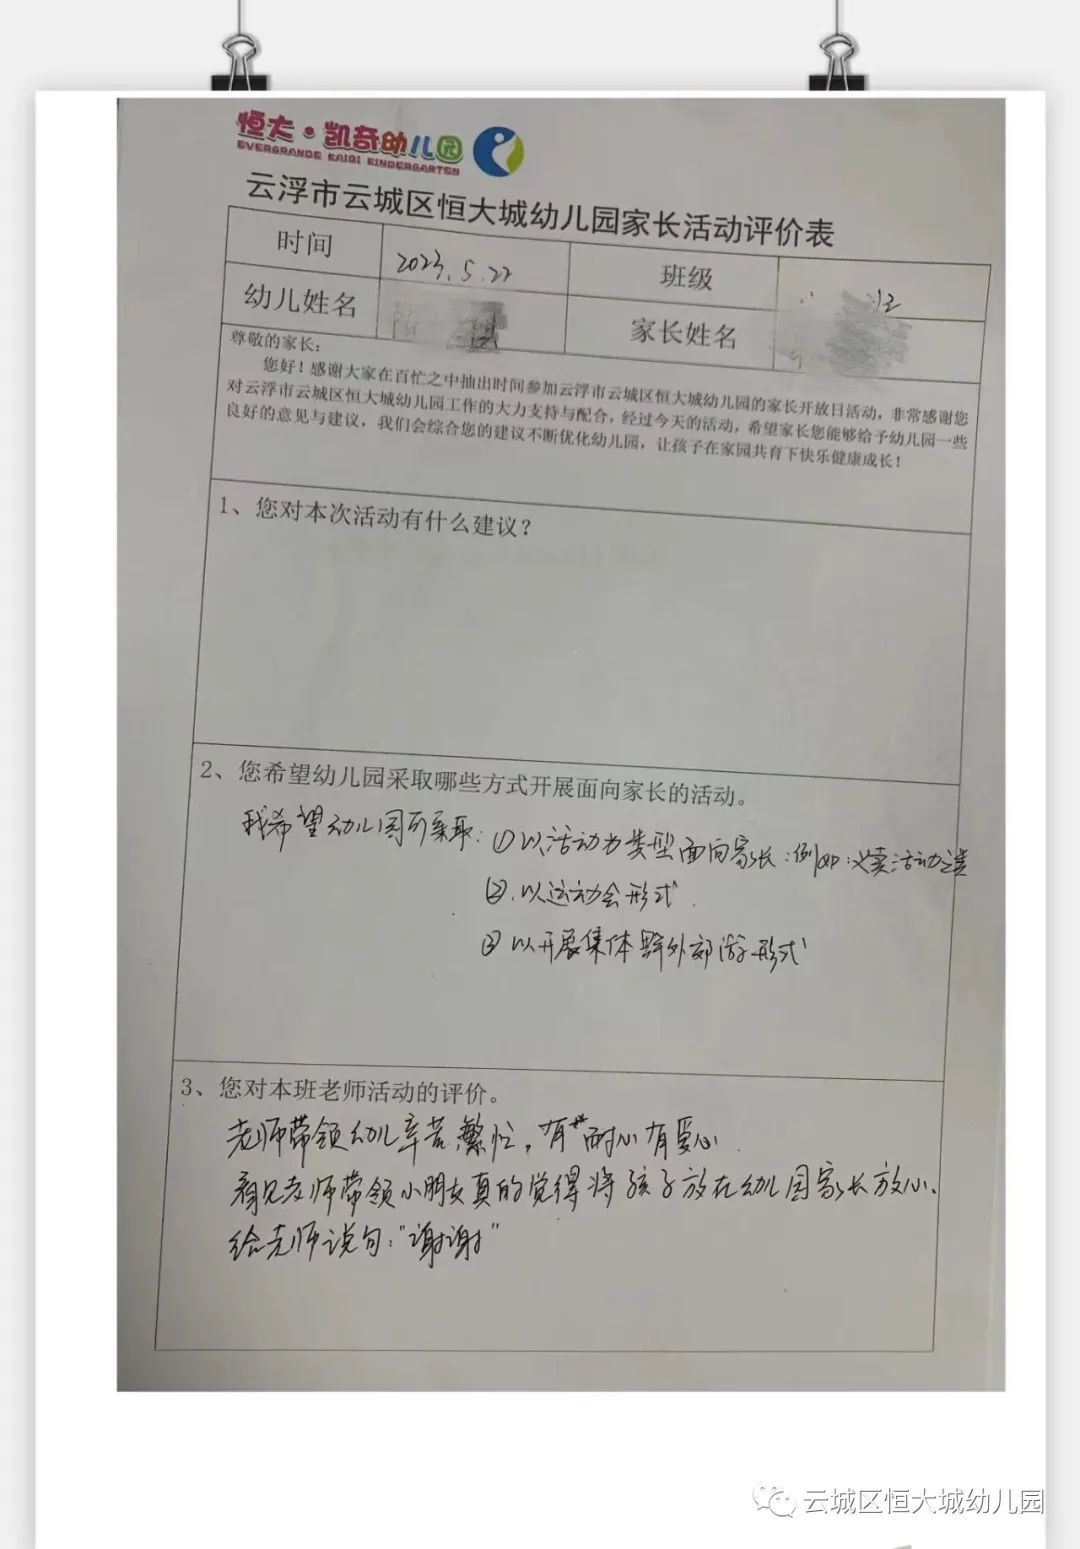 恒大·凯奇幼儿园
EVERGRANDE KAIQI KINDERGARTEN
云浮市云城区恒大城幼儿园家长活动评价表
时间 2023.5.22 班级 班
幼儿姓名 家长姓名
尊敬的家长：
您好！感谢大家在百忙之中抽出时间参加云浮市云城区恒大城幼儿园的家长开放日活动，非常感谢您
对云浮市云城区恒大城幼儿园工作的大力支持与配合，经过今天的活动，希望家长您能够给予幼儿园一些
良好的意见与建议，我们会综合您的建议不断优化幼儿园，让孩子在家园共育下快乐健康成长！
1、您对本次活动有什么建议？
2、您希望幼儿园采取哪些方式开展面向家长的活动。
我希望幼儿园可采取：①以活动为类型面向家长：例如：义卖活动之类
②.以运动会形式.
③以开展集体野外郊游形式
3、您对本班老师活动的评价。
老师带领幼儿辛苦繁忙，有耐心有爱心.
看见老师带领小朋友真的觉得将孩子放在幼儿园家长放心、
给老师说句："谢谢"
云城区恒大城幼儿园